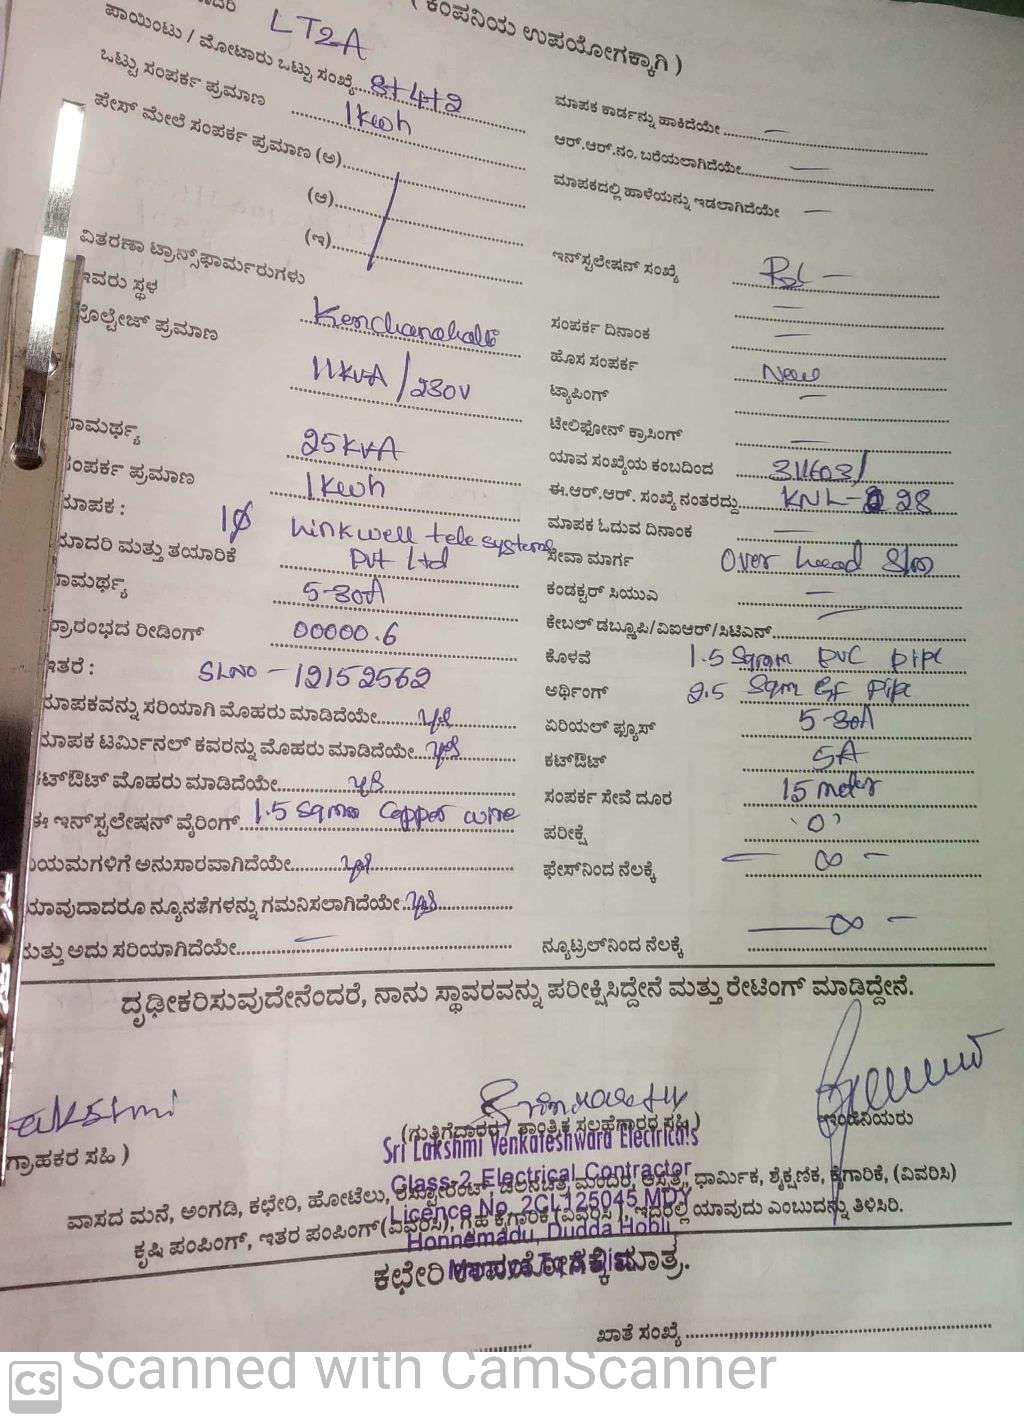 ( ಕಂಪನಿಯ ಉಪಯೋಗಕ್ಕಾಗಿ )
LT2A
ಪಾಯಿಂಟು / ಮೋಟಾರು ಒಟ್ಟು ಸಂಖ್ಯೆ 8+4+2
ಒಟ್ಟು ಸಂಪರ್ಕ ಪ್ರಮಾಣ 1kwh
ಪೇಸ್ ಮೇಲೆ ಸಂಪರ್ಕ ಪ್ರಮಾಣ (ಅ)
(ಆ)
(ಇ)
ವಿತರಣಾ ಟ್ರಾನ್ಸ್‌ಫಾರ್ಮರುಗಳು
ಇವರು ಸ್ಥಳ Kenchanahalli
ವೊಲ್ಟೇಜ್ ಪ್ರಮಾಣ 11KVA / 230V
ಸಾಮರ್ಥ್ಯ 25KVA
ಸಂಪರ್ಕ ಪ್ರಮಾಣ 1kwh
ಮಾಪಕ : 1Ø Linkwell tele systems
ಮಾದರಿ ಮತ್ತು ತಯಾರಿಕೆ Pvt Ltd
ಸಾಮರ್ಥ್ಯ 5-30A
ಪ್ರಾರಂಭದ ರೀಡಿಂಗ್ 00000.6
ಇತರೆ : SLNO - 12152562
ಮಾಪಕವನ್ನು ಸರಿಯಾಗಿ ಮೊಹರು ಮಾಡಿದೆಯೇ yes
ಮಾಪಕ ಟರ್ಮಿನಲ್ ಕವರನ್ನು ಮೊಹರು ಮಾಡಿದೆಯೇ yes
ಕಟ್‌ಔಟ್ ಮೊಹರು ಮಾಡಿದೆಯೇ yes
ಈ ಇನ್‌ಸ್ಟಲೇಷನ್ ವೈರಿಂಗ್ 1.5 sqmm Copper wire
ನಿಯಮಗಳಿಗೆ ಅನುಸಾರವಾಗಿದೆಯೇ yes
ಯಾವುದಾದರೂ ನ್ಯೂನತೆಗಳನ್ನು ಗಮನಿಸಲಾಗಿದೆಯೇ yes
ಮತ್ತು ಅದು ಸರಿಯಾಗಿದೆಯೇ —
ಮಾಪಕ ಕಾರ್ಡನ್ನು ಹಾಕಿದೆಯೇ —
ಆರ್.ಆರ್.ನಂ. ಬರೆಯಲಾಗಿದೆಯೇ —
ಮಾಪಕದಲ್ಲಿ ಹಾಳೆಯನ್ನು ಇಡಲಾಗಿದೆಯೇ —
ಇನ್‌ಸ್ಟಲೇಷನ್ ಸಂಖ್ಯೆ
ಸಂಪರ್ಕ ದಿನಾಂಕ —
ಹೊಸ ಸಂಪರ್ಕ New
ಟ್ಯಾಪಿಂಗ್ —
ಟೇಲಿಫೋನ್ ಕ್ರಾಸಿಂಗ್ —
ಯಾವ ಸಂಖ್ಯೆಯ ಕಂಬದಿಂದ 311603/
ಈ.ಆರ್.ಆರ್. ಸಂಖ್ಯೆ ನಂತರದ್ದು KNL-228
ಮಾಪಕ ಓದುವ ದಿನಾಂಕ —
ಸೇವಾ ಮಾರ್ಗ Over head
ಕಂಡಕ್ಟರ್ ಸಿಯುಎ —
ಕೇಬಲ್ ಡಬ್ಲ್ಯೂಪಿ/ವಿಐಆರ್/ಸಿಟಿಎನ್ —
ಕೊಳವೆ 1.5 Sqmm PVC pipe
ಅರ್ಥಿಂಗ್ 2.5 Sqm GI Pipe
ಏರಿಯಲ್ ಫ್ಯೂಸ್ 5-30A
ಕಟ್‌ಔಟ್ 5A
ಸಂಪರ್ಕ ಸೇವೆ ದೂರ 15 meter
ಪರೀಕ್ಷೆ '0'
ಫೇಸ್‌ನಿಂದ ನೆಲಕ್ಕೆ — ∞ —
ನ್ಯೂಟ್ರಲ್‌ನಿಂದ ನೆಲಕ್ಕೆ — ∞ —
ದೃಢೀಕರಿಸುವುದೇನೆಂದರೆ, ನಾನು ಸ್ಥಾವರವನ್ನು ಪರೀಕ್ಷಿಸಿದ್ದೇನೆ ಮತ್ತು ರೇಟಿಂಗ್ ಮಾಡಿದ್ದೇನೆ.
(ಗುತ್ತಿಗೆದಾರರ / ತಾಂತ್ರಿಕ ಸಲಹೆಗಾರರ ಸಹಿ)
ಗ್ರಾಹಕರ ಸಹಿ )
Sri Lakshmi Venkateshwara Electricals
Class-2 Electrical Contractor
Licence No. 2CL125045 MDY
Honnemadu, Dudda Hobli
ವಾಸದ ಮನೆ, ಅಂಗಡಿ, ಕಛೇರಿ, ಹೋಟೆಲು, ರೆಸ್ಟೋರೆಂಟ್, ಚಲನಚಿತ್ರ ಮಂದಿರ, ಆಸ್ಪತ್ರೆ, ಧಾರ್ಮಿಕ, ಶೈಕ್ಷಣಿಕ, ಕೈಗಾರಿಕೆ, (ವಿವರಿಸಿ)
ಕೃಷಿ ಪಂಪಿಂಗ್, ಇತರ ಪಂಪಿಂಗ್(ವಿವರಿಸಿ), ಗೃಹ ಕೈಗಾರಿಕೆ (ವಿವರಿಸಿ), ಇದರಲ್ಲಿ ಯಾವುದು ಎಂಬುದನ್ನು ತಿಳಿಸಿರಿ.
ಕಛೇರಿ ಉಪಯೋಗಕ್ಕೆ ಮಾತ್ರ.
ಖಾತೆ ಸಂಖ್ಯೆ
CS Scanned with CamScanner